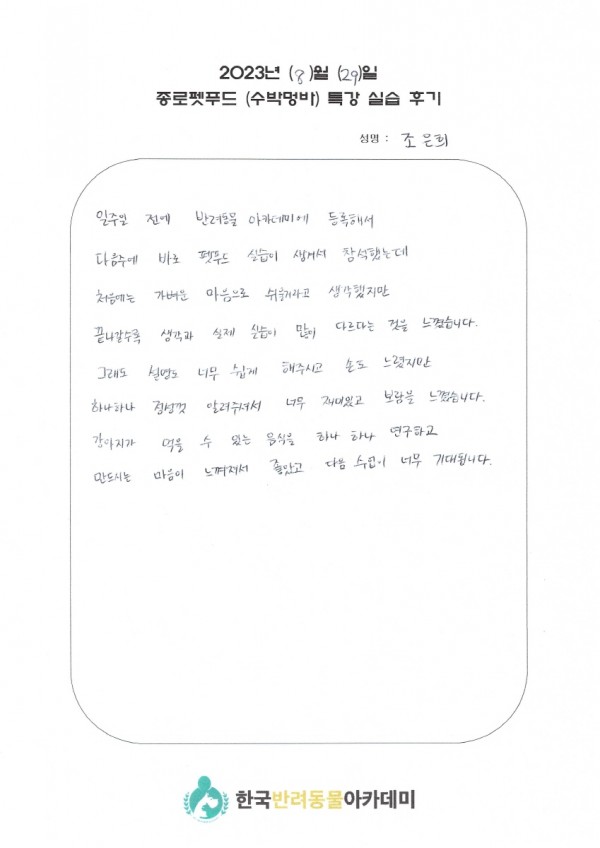 2023년 (8)월 (29)일
종로펫푸드 (수박멍바) 특강 실습 후기
성명 : 조은희
일주일 전에 반려동물 아카데미에 등록해서
다음주에 바로 펫푸드 실습이 생겨서 참석했는데
처음에는 가벼운 마음으로 쉬울거라고 생각했지만
끝나갈수록 생각과 실제 실습이 많이 다르다는 것을 느꼈습니다.
그래도 설명도 너무 쉽게 해주시고 손도 느렸지만
하나하나 정성껏 알려주셔서 너무 재미있고 보람을 느꼈습니다.
강아지가 먹을 수 있는 음식을 하나 하나 연구하고
만드시는 마음이 느껴져서 좋았고 다음 수업이 너무 기대됩니다.
한국반려동물아카데미